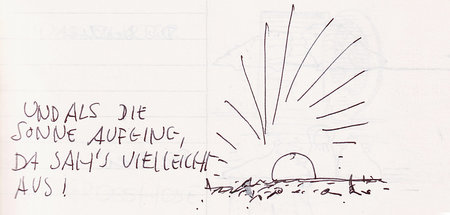 UND ALS DIE
SONNE AUFGING,
DA SAH'S VIELLEICHT
AUS!